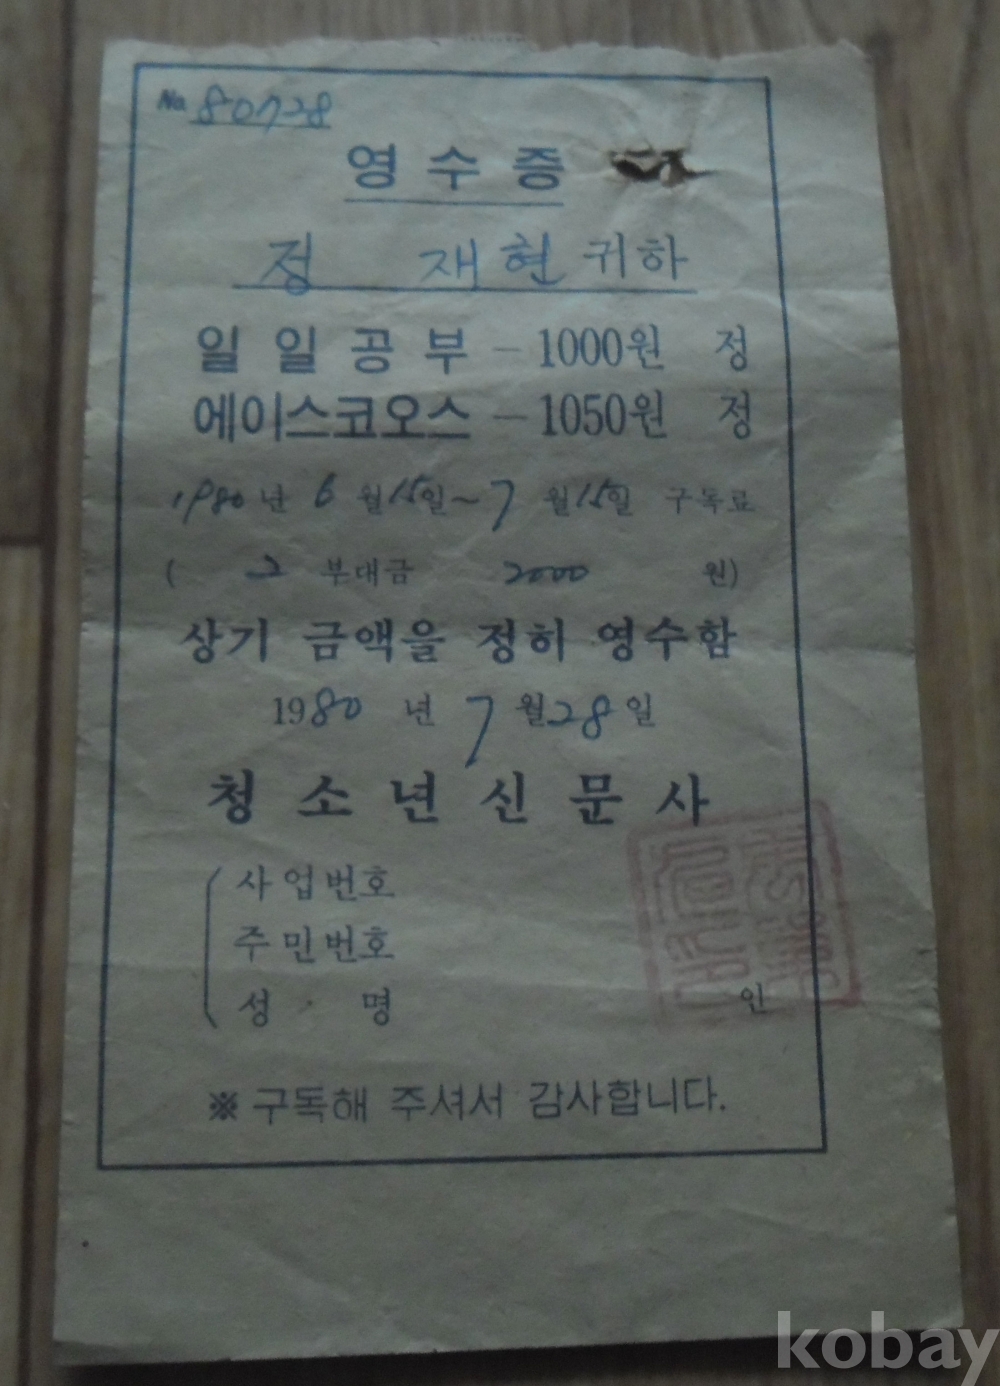 No. 80728
영수증
정 재현 귀하
일일공부 - 1000원 정
에이스코오스 - 1050원 정
1980년 6월 15일~7월 15일 구독료
( 2 부대금 2000 원)
상기 금액을 정히 영수함
1980 년 7월 28일
청소년신문사
사업번호
주민번호
성 명 인
※구독해 주셔서 감사합니다.
kobay